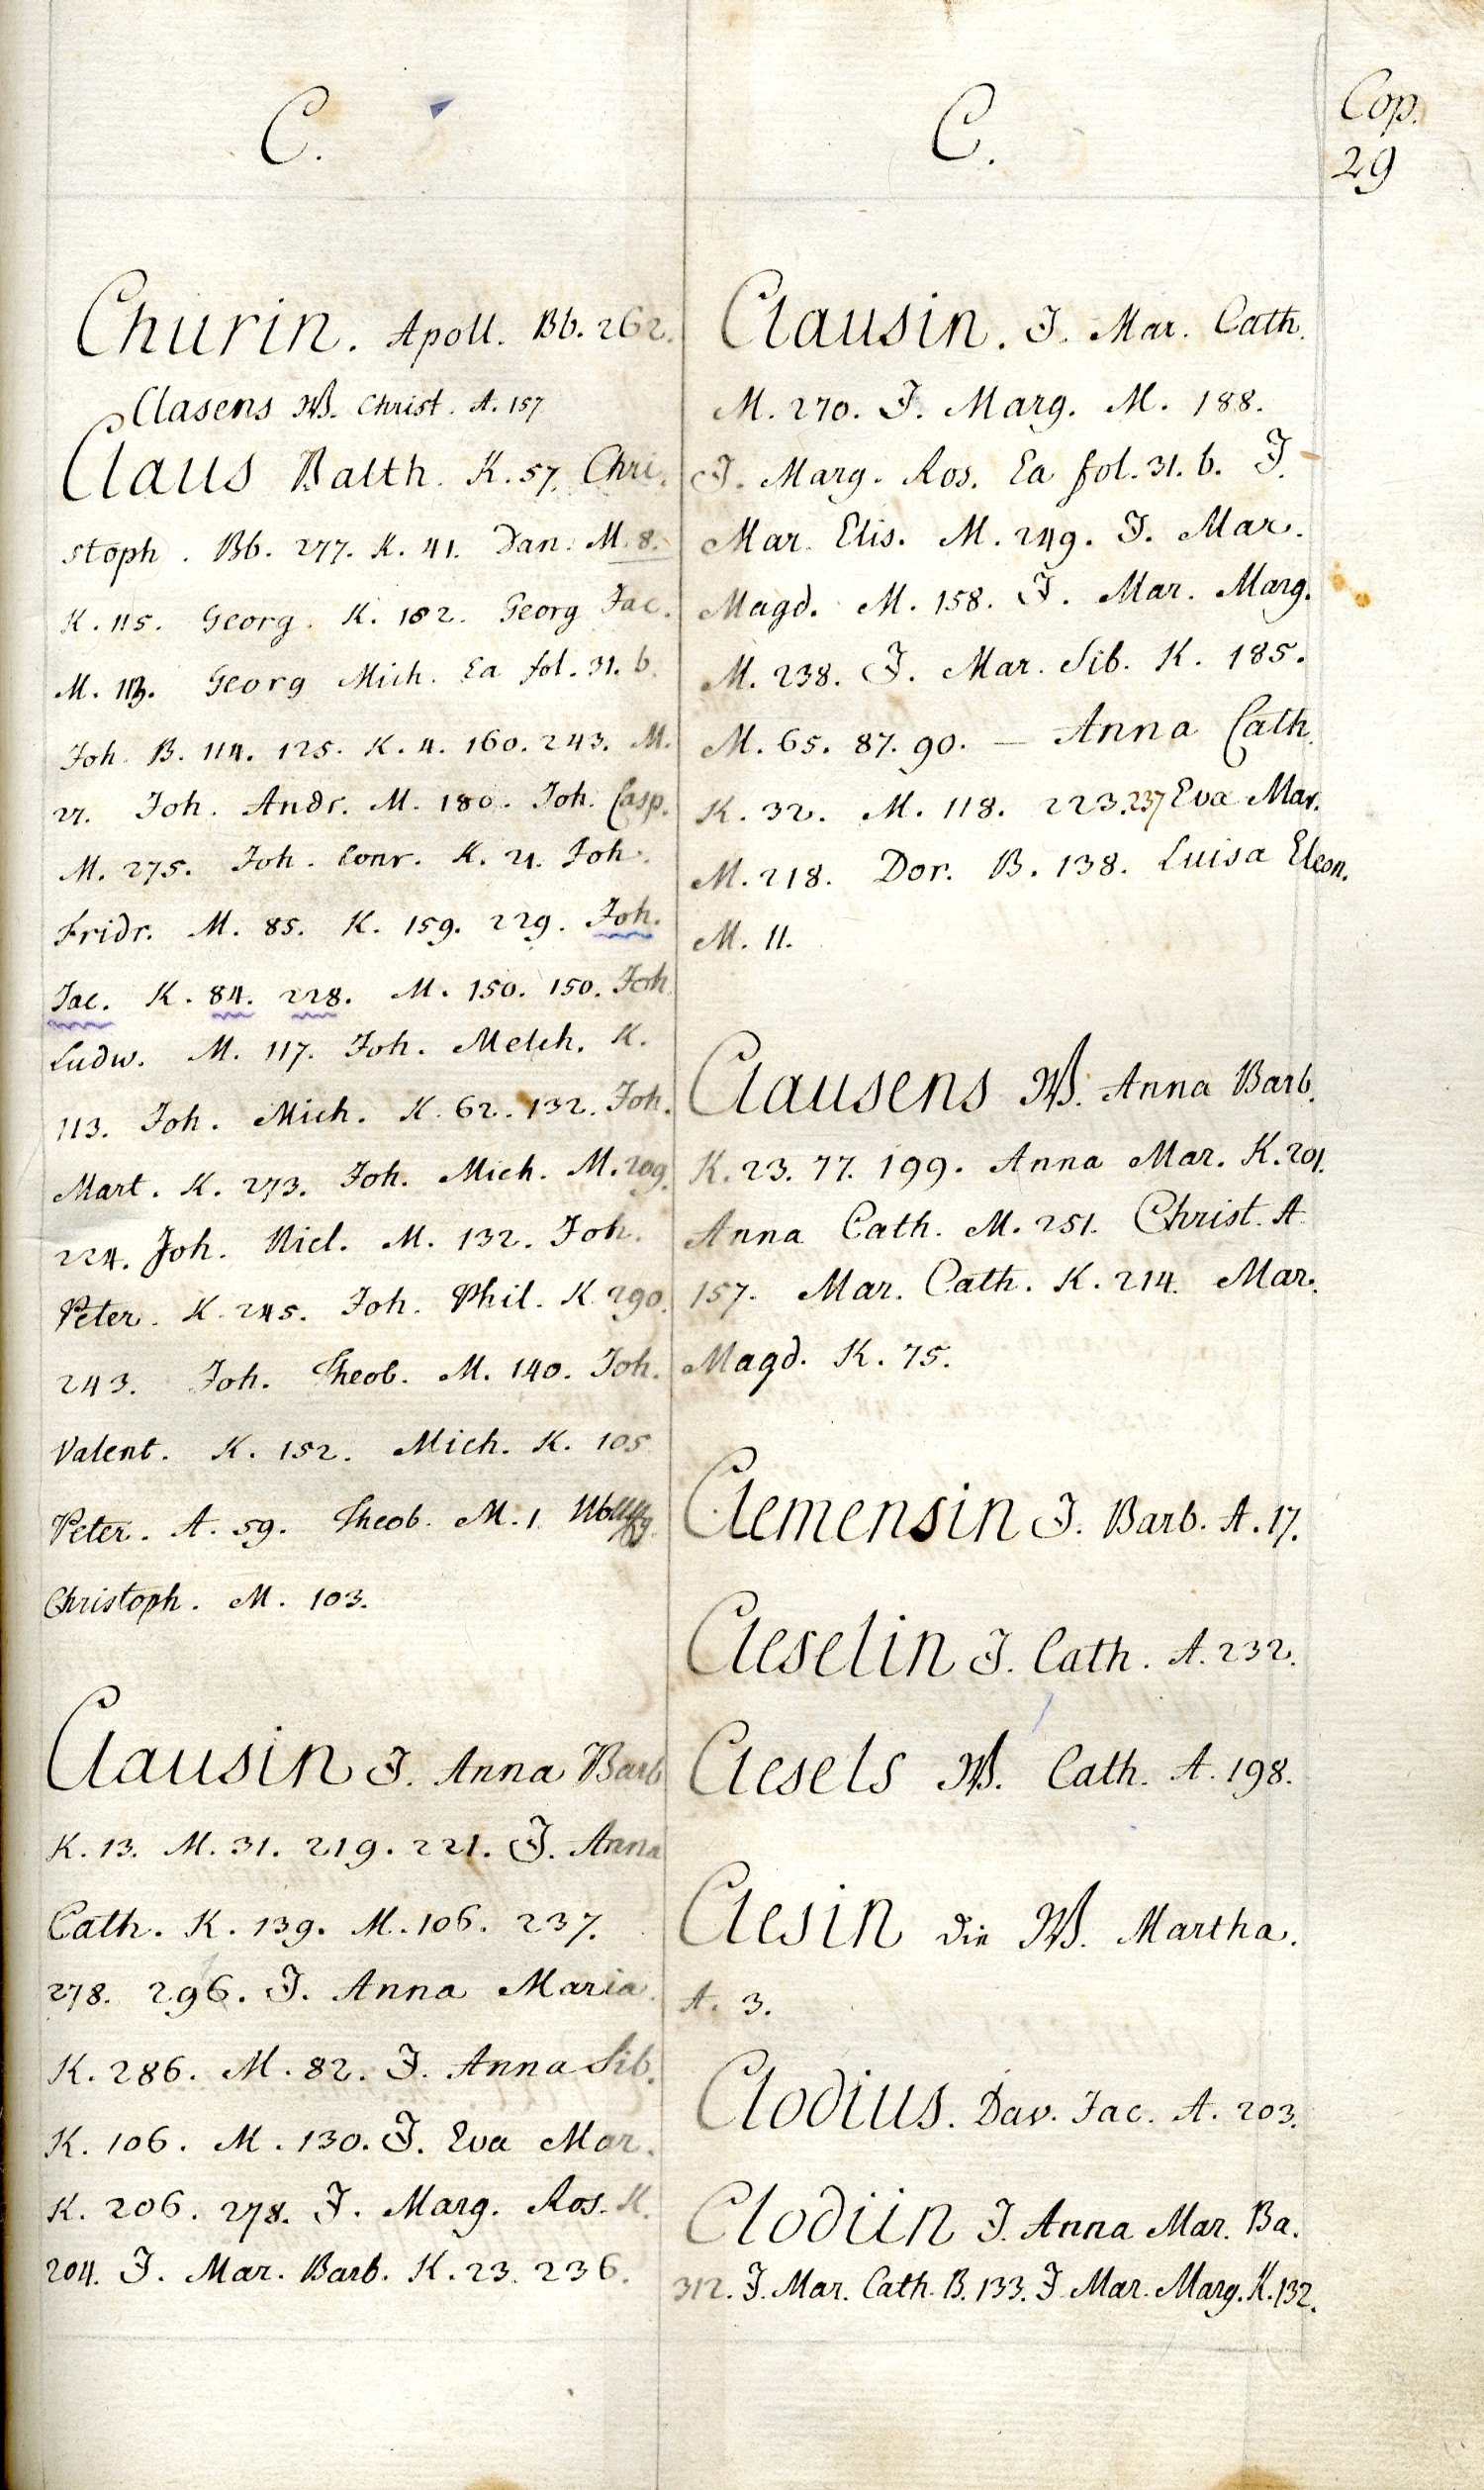 C.
Churin. Apoll. Bb. 262.
Clasens W. Christ. A. 157
Claus Balth. K. 57. Chri.
stoph. Bb. 277. K. 41. Dan. M. 8.
K. 115. Georg. K. 182. Georg Jac.
M. 113. Georg Mich. Ea fol. 31. b.
Joh. B. 114. 125. K. 4. 160. 243. M.
27. Joh. Andr. M. 180. Joh. Casp.
M. 275. Joh. Conr. K. 21. Joh.
Fridr. M. 85. K. 159. 229. Joh.
Jac. K. 84. 228. M. 150. 150. Joh
Ludw. M. 117. Joh. Melch. K.
113. Joh. Mich. K. 62. 132. Joh.
Mart. K. 273. Joh. Mich. M. 209.
224. Joh. Nicl. M. 132. Joh.
Peter. K. 245. Joh. Phil. K. 290.
243. Joh. Theob. M. 140. Joh.
Valent. K. 152. Mich. K. 105
Peter. A. 59. Theob. M. 1.
Christoph. M. 103.
Clausin J. Anna Barb
K. 13. M. 31. 219. 221. J. Anna
Cath. K. 139. M. 106. 237.
278. 296. J. Anna Maria.
K. 286. M. 82. J. Anna Sib.
K. 106. M. 130. J. Eva Mar.
K. 206. 278. J. Marg. Ros. K.
204. J. Mar. Barb. K. 23. 236.
C.
Clausin. J. Mar. Cath.
M. 270. J. Marg. M. 188.
J. Marg. Ros. Ea fol. 31. b. J.
Mar. Elis. M. 249. J. Mar.
Magd. M. 158. J. Mar. Marg.
M. 238. J. Mar. Sib. K. 185.
M. 65. 87. 90. — Anna Cath.
K. 32. M. 118. 223. 237 Eva Mar.
M. 218. Dor. B. 138. Luisa Eleon.
M. 11.
Clausens W. Anna Barb.
K. 23. 77. 199. Anna Mar. K. 201.
Anna Cath. M. 251. Christ. A
157. Mar. Cath. K. 214. Mar.
Magd. K. 75.
Clemensin J. Barb. A. 17.
Cleselin J. Cath. A. 232.
Clesels W. Cath. A. 198.
Clesin die W. Martha.
A. 3.
Clodius. Dav. Jac. A. 203.
Clodiin J. Anna Mar. Ba.
312. J. Mar. Cath. B. 133. J. Mar. Marg. K. 132.
Cop.
29